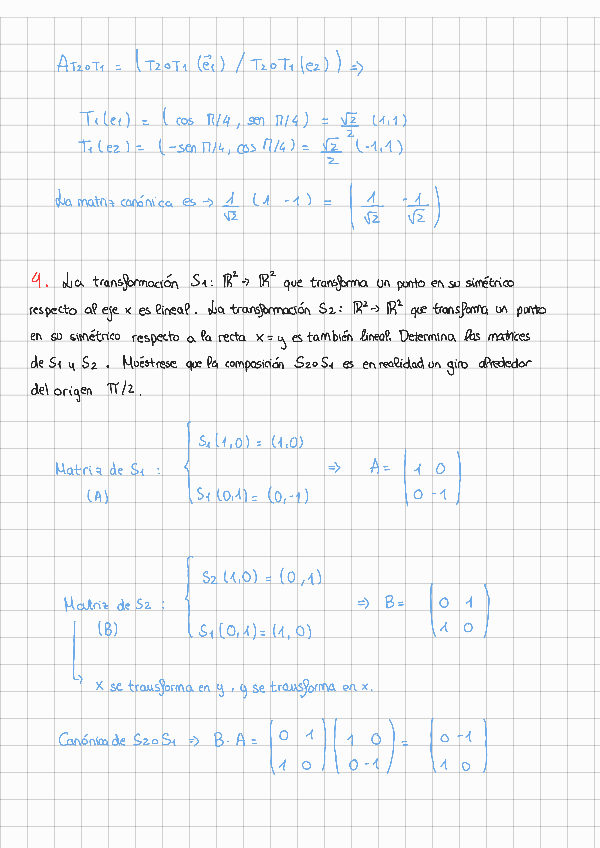 A T2∘T1 = ( T2∘T1 (e⃗1) / T2∘T1 (e2) ) =>
T1(e1) = ( cos π/4 , sen π/4 ) = √2/2 (1,1)
T1(e2) = (-sen π/4, cos π/4) = √2/2 (-1,1)
La matriz canónica es → 1/√2 (1 -1) = ( 1/√2 -1/√2 )
4. La transformación S1: ℝ² → ℝ² que transforma un punto en su simétrico
respecto al eje x es lineal. La transformación S2: ℝ² → ℝ² que transforma un punto
en su simétrico respecto a la recta x = y es también lineal. Determina las matrices
de S1 y S2 . Muéstrese que la composición S2∘S1 es en realidad un giro alrededor
del origen π/2.
S1(1,0) = (1,0)
Matriz de S1 : => A = ( 1 0
(A) S1(0,1) = (0,-1) 0 -1 )
S2(1,0) = (0,1)
Matriz de S2 : => B = ( 0 1
(B) S1(0,1) = (1,0) 1 0 )
↳ x se transforma en y , y se transforma en x.
Canónica de S2∘S1 => B·A = ( 0 1 ( 1 0 = ( 0 -1
1 0 ) 0 -1 ) 1 0 )